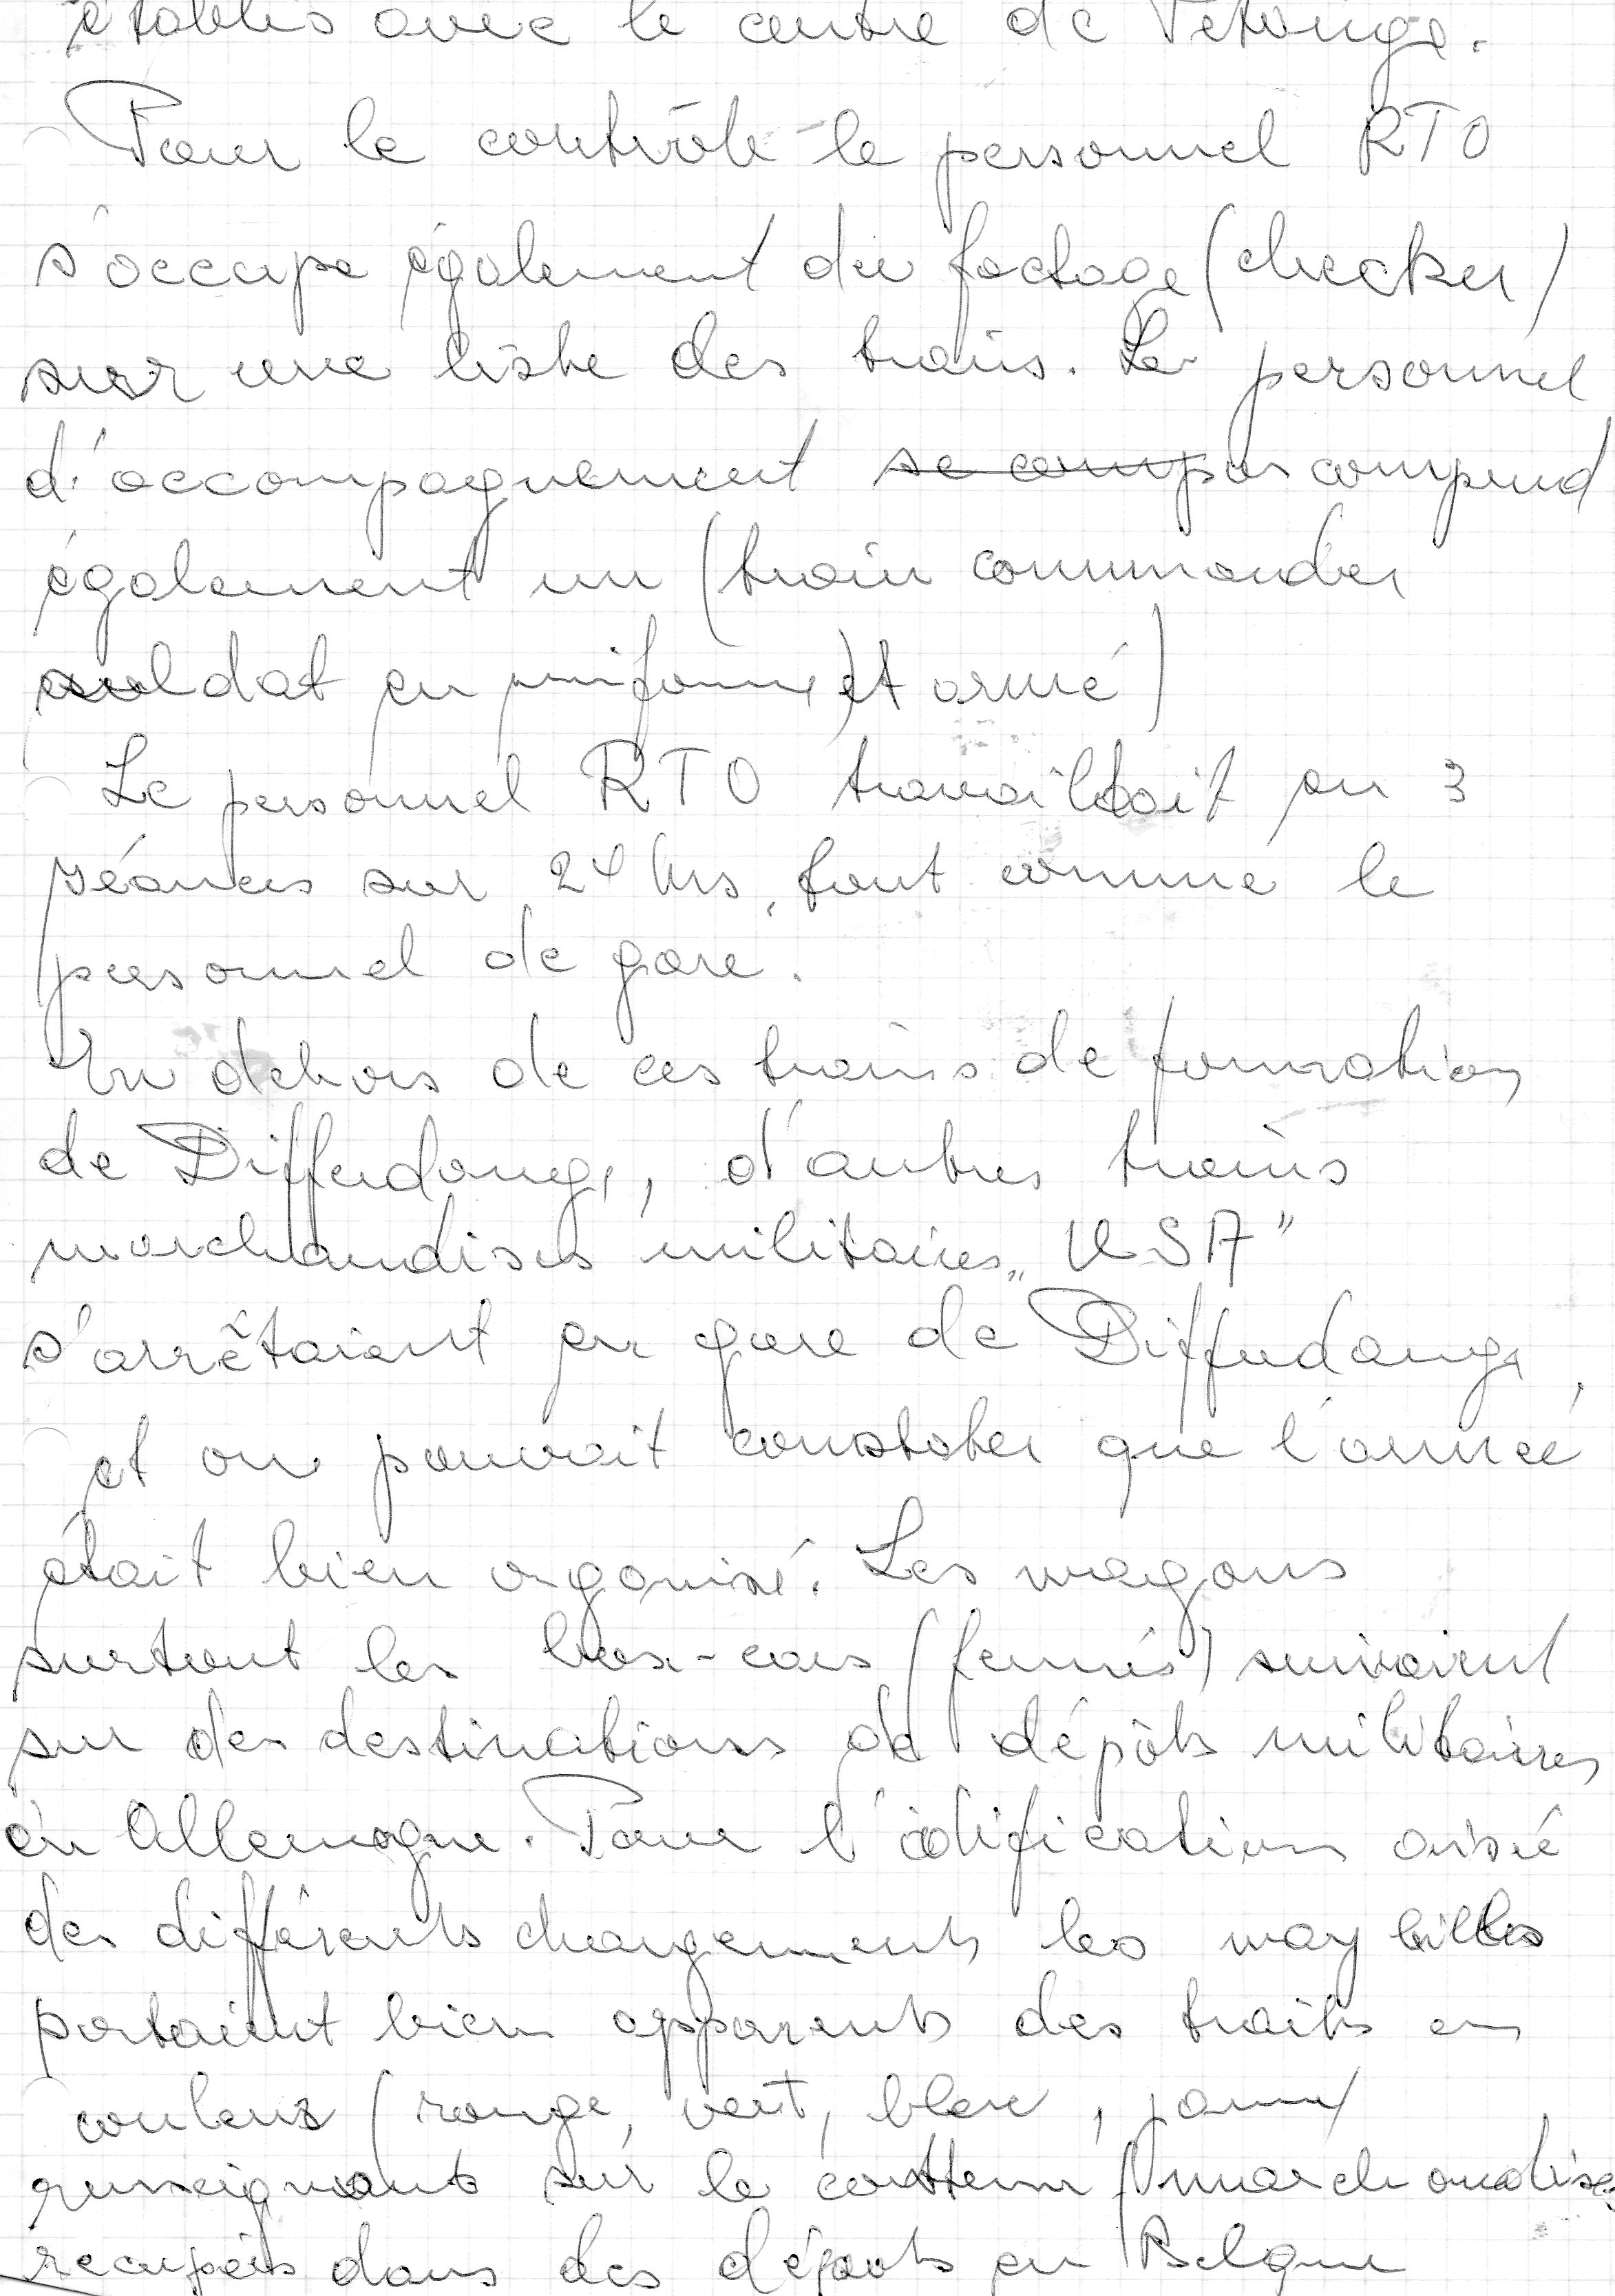 établis avec le centre de Pétange.
Pour le contrôle le personnel RTO
s'occupe également du factage (checker)
sur une liste des trains. Le personnel
d'accompagnement se compos comprend
également un (train commander
soldat en uniforme) et armé)
Le personnel RTO travaillait en 3
séances sur 24 hrs, tout comme le
personnel de gare.
En dehors de ces trains de formation
de Differdange, d'autres trains
marchandises militaires „USA"
s'arrêtaient en gare de Differdange,
et on pouvait constater que l'armée
était bien organisé. Les wagons
surtout les box-cars (fermés) suivaient
sur des destinations de dépôts militaires
en Allemagne. Pour l'idification aisée
des différents chargements les way bills
portaient bien apparents des traits en
couleurs (rouge, vert, bleu, jaune)
renseignants sur le contenu marchandises
recupérés dans des dépôts en Belgique